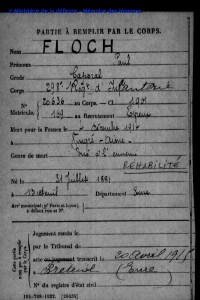 © Ministère de la défense - Mémoire des hommes
PARTIE À REMPLIR PAR LE CORPS.
Nom FLOCH
Prénoms Paul
Grade Caporal
Corps 298e Régt d'Infanterie
N° 20636 au Corps. — Cl 1901
Matricule. 159 au Recrutement
Mort pour la France le 4 Décembre 1914
à Vingré - Aisne
Genre de mort
RÉHABILITÉ
Né le 31 Juillet 1881
à Breteuil Département Eure
Arrt municipal (pr Paris et Lyon),
à défaut rue et N°.
Cette partie
n'est pas à remplir
par le Corps.
Jugement rendu le
par le Tribunal de
acte ou jugement transcrit le 20 avril
à Breteuil (Eure)
N° du registre d'état civil